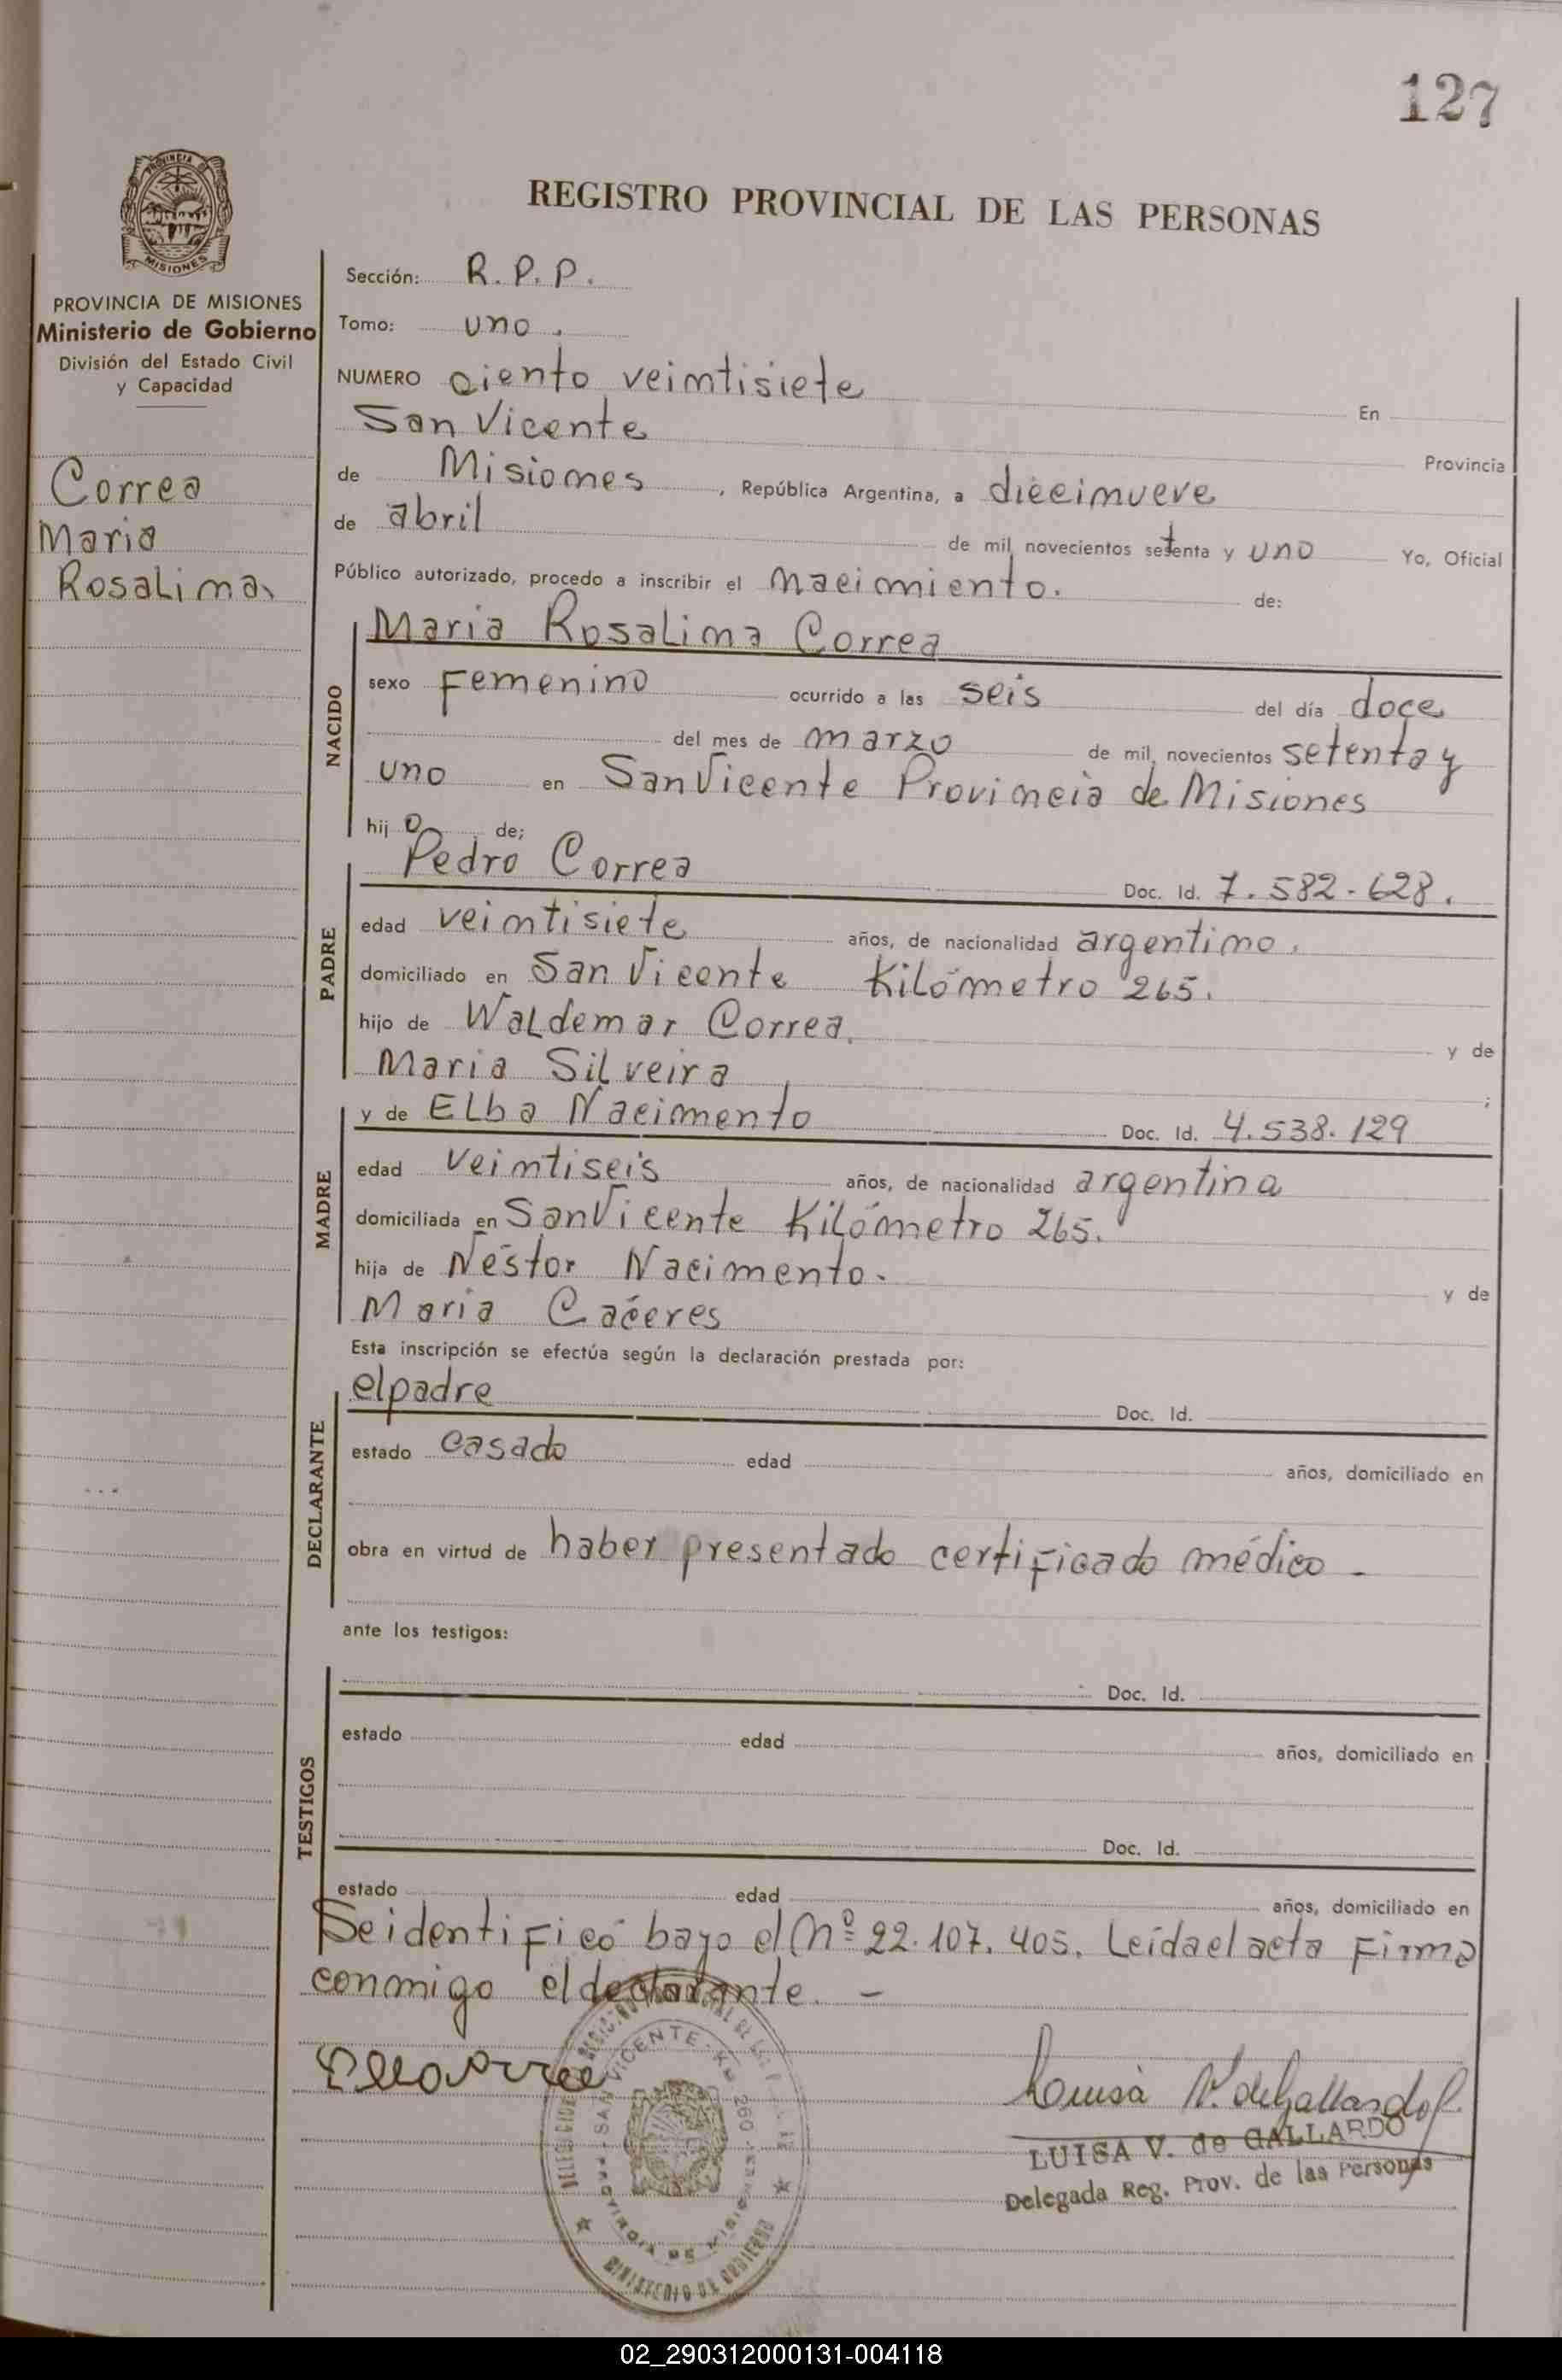 127
PROVINCIA DE
MISIONES
REGISTRO PROVINCIAL DE LAS PERSONAS
PROVINCIA DE MISIONES
Ministerio de Gobierno
División del Estado Civil
y Capacidad
Correa
Maria
Rosalima
Sección: R.P.P.
Tomo: uno.
NUMERO ciento veimtisiete En
San Vicente Provincia
de Misiomes, República Argentina, a diecimueve
de abril de mil novecientos setenta y uno Yo, Oficial
Público autorizado, procedo a inscribir el nacimiento. de:
NACIDO
Maria Rosalima Correa
sexo Femenino ocurrido a las seis del día doce
del mes de marzo de mil novecientos setenta y
uno en San Vicente Provimcia de Misiones
hij a de;
PADRE
Pedro Correa Doc. Id. 7.582-628.
edad veimtisiete años, de nacionalidad argentimo.
domiciliado en San Vicente Kilómetro 265.
hijo de Waldemar Correa. y de
Maria Silveira ;
MADRE
y de Elba Nacimento Doc. Id. 4.538.129
edad veimtiseis años, de nacionalidad argentina
domiciliada en San Vicente Kilómetro 265.
hija de Néstor Nacimento. y de
Maria Cáceres
Esta inscripción se efectúa según la declaración prestada por:
DECLARANTE
el padre Doc. Id.
estado casado edad años, domiciliado en
obra en virtud de haber presentado certificado médico -
ante los testigos:
TESTIGOS
Doc. Id.
estado edad años, domiciliado en
Doc. Id.
estado edad años, domiciliado en
Se identificó bajo el Nº 22.107.405. Leída el acta firma
conmigo el declarante. -
SAN VICENTE - Km 260
PROVINCIA DE MISIONES
MINISTERIO DE GOBIERNO
Luisa V. de Gallardo
LUISA V. de GALLARDO
Delegada Reg. Prov. de las Personas
02_290312000131-004118